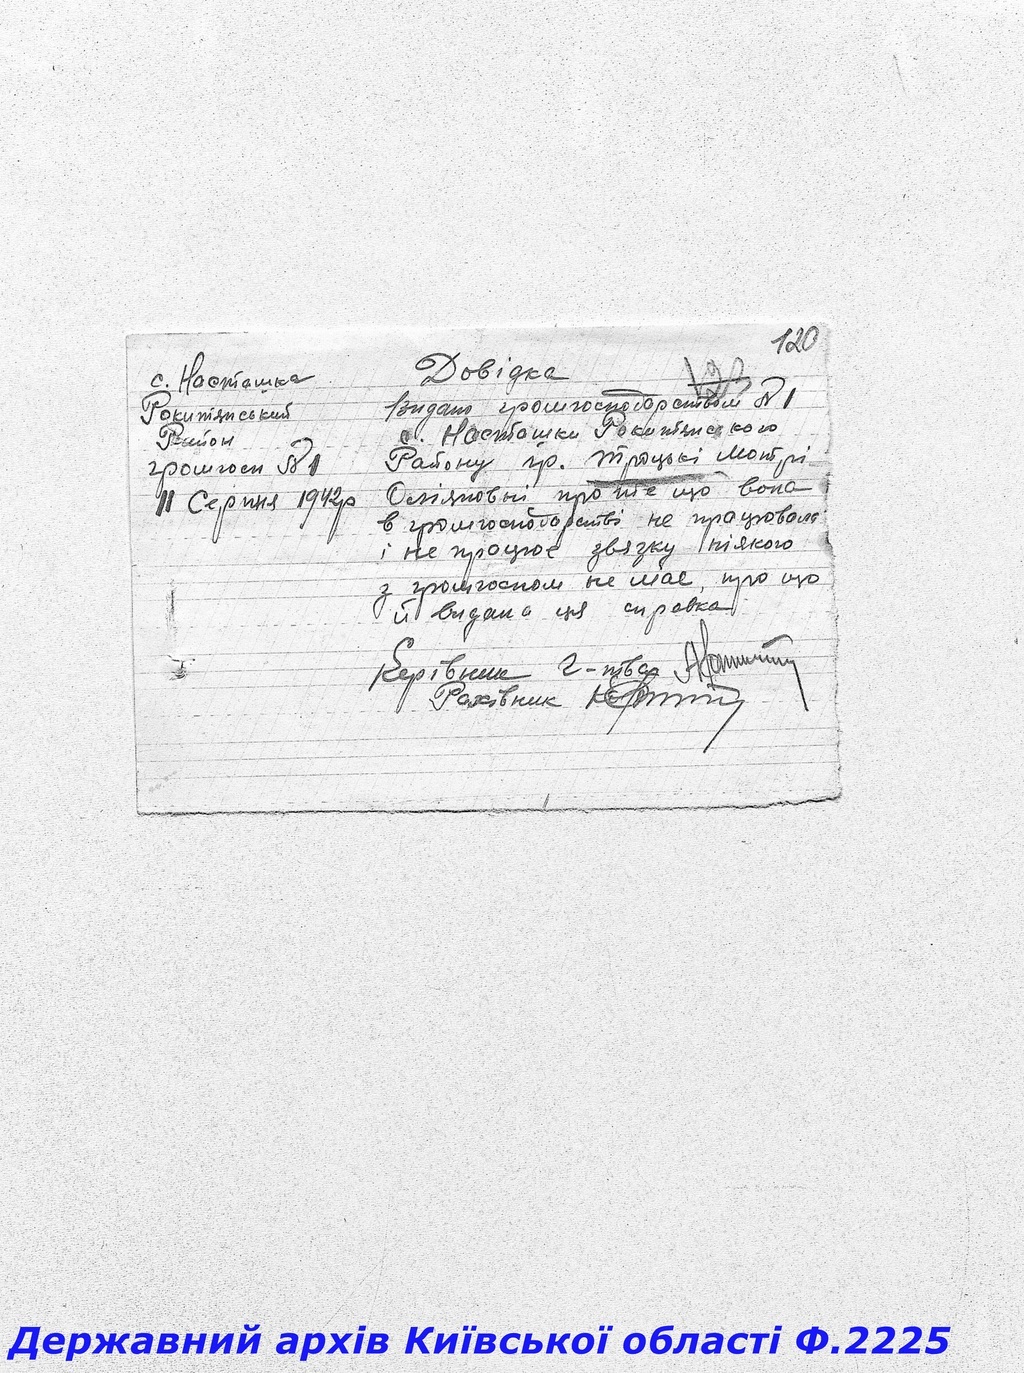 120
с. Насташка
Рокитянський
Район
громгосп № 1
11 Серпня 1942р
Довідка
Видано громгосподарством № 1
с. Насташки Рокитянского
Району гр. Троцькі Мотрі
про те що вона
в громгосподарстві не працювала
і не працює звязку ніякого
з громгоспом не має, про що
й видана ця справка
Керівник г-тва
Рахівник
Державний архів Київської області Ф.2225